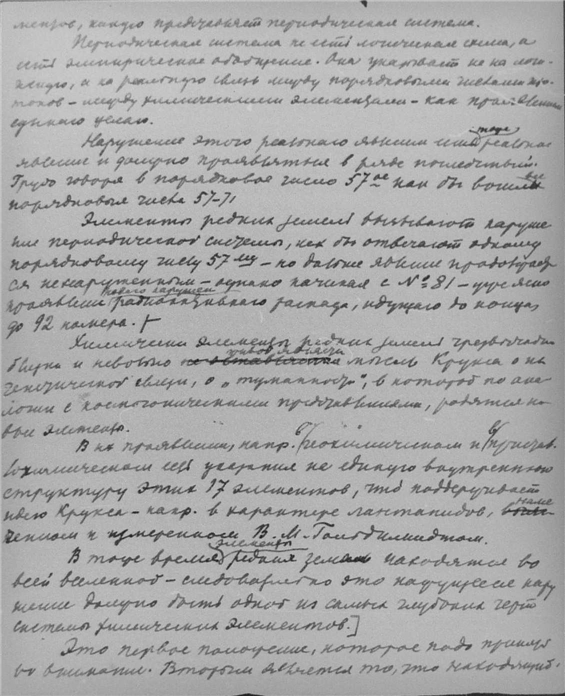 ментов, какую представляет периодическая система.
Периодическая система не есть логическая схема, а
есть эмпирическое обобщение. Она указывает не на логи-
ческую, а на реальную связь между порядковыми числами
- между химическими элементами - как проявление
единого целого.
Нарушение этого реального явления есть тоже реальное
явление и должно проявляться в ряде последствий.
Грубо говоря в порядковое число 57ое как бы вошли все
порядковые числа 57-71
Элементы редких земель вызывают наруше-
ние периодической системы, как бы отвечают одному
порядковому числу 57му - но дальше явление продолжает-
ся ненарушенным - однако начиная с № 81 - уже ясно
проявление нового нарушения радиоактивного распада, идущего до конца,
до 92 номера. +
Химически элементы редких земель чрезвычайно
близки и невольно явилась мысль Крукса о их
генетической связи, о „туманности", в которой по ана-
логии с космогоническими представлениями, родятся но-
вые элементы.
В их проявлении, напр. в геохимическом и в
химическом есть указания на единую внутреннюю
структуру этих 17 элементов, что поддерживает
идею Крукса - напр. в характере лантанидов,
и измеренном В. М. Гольдшмидтом.
В тоже время элементы редких земель находятся во
всей вселенной - следовательно это нарушение
должно быть одной из самых глубоких черт
системы химических элементов.]
Это первое положение, которое надо принять
во внимание. Вторым является то, что находящий-